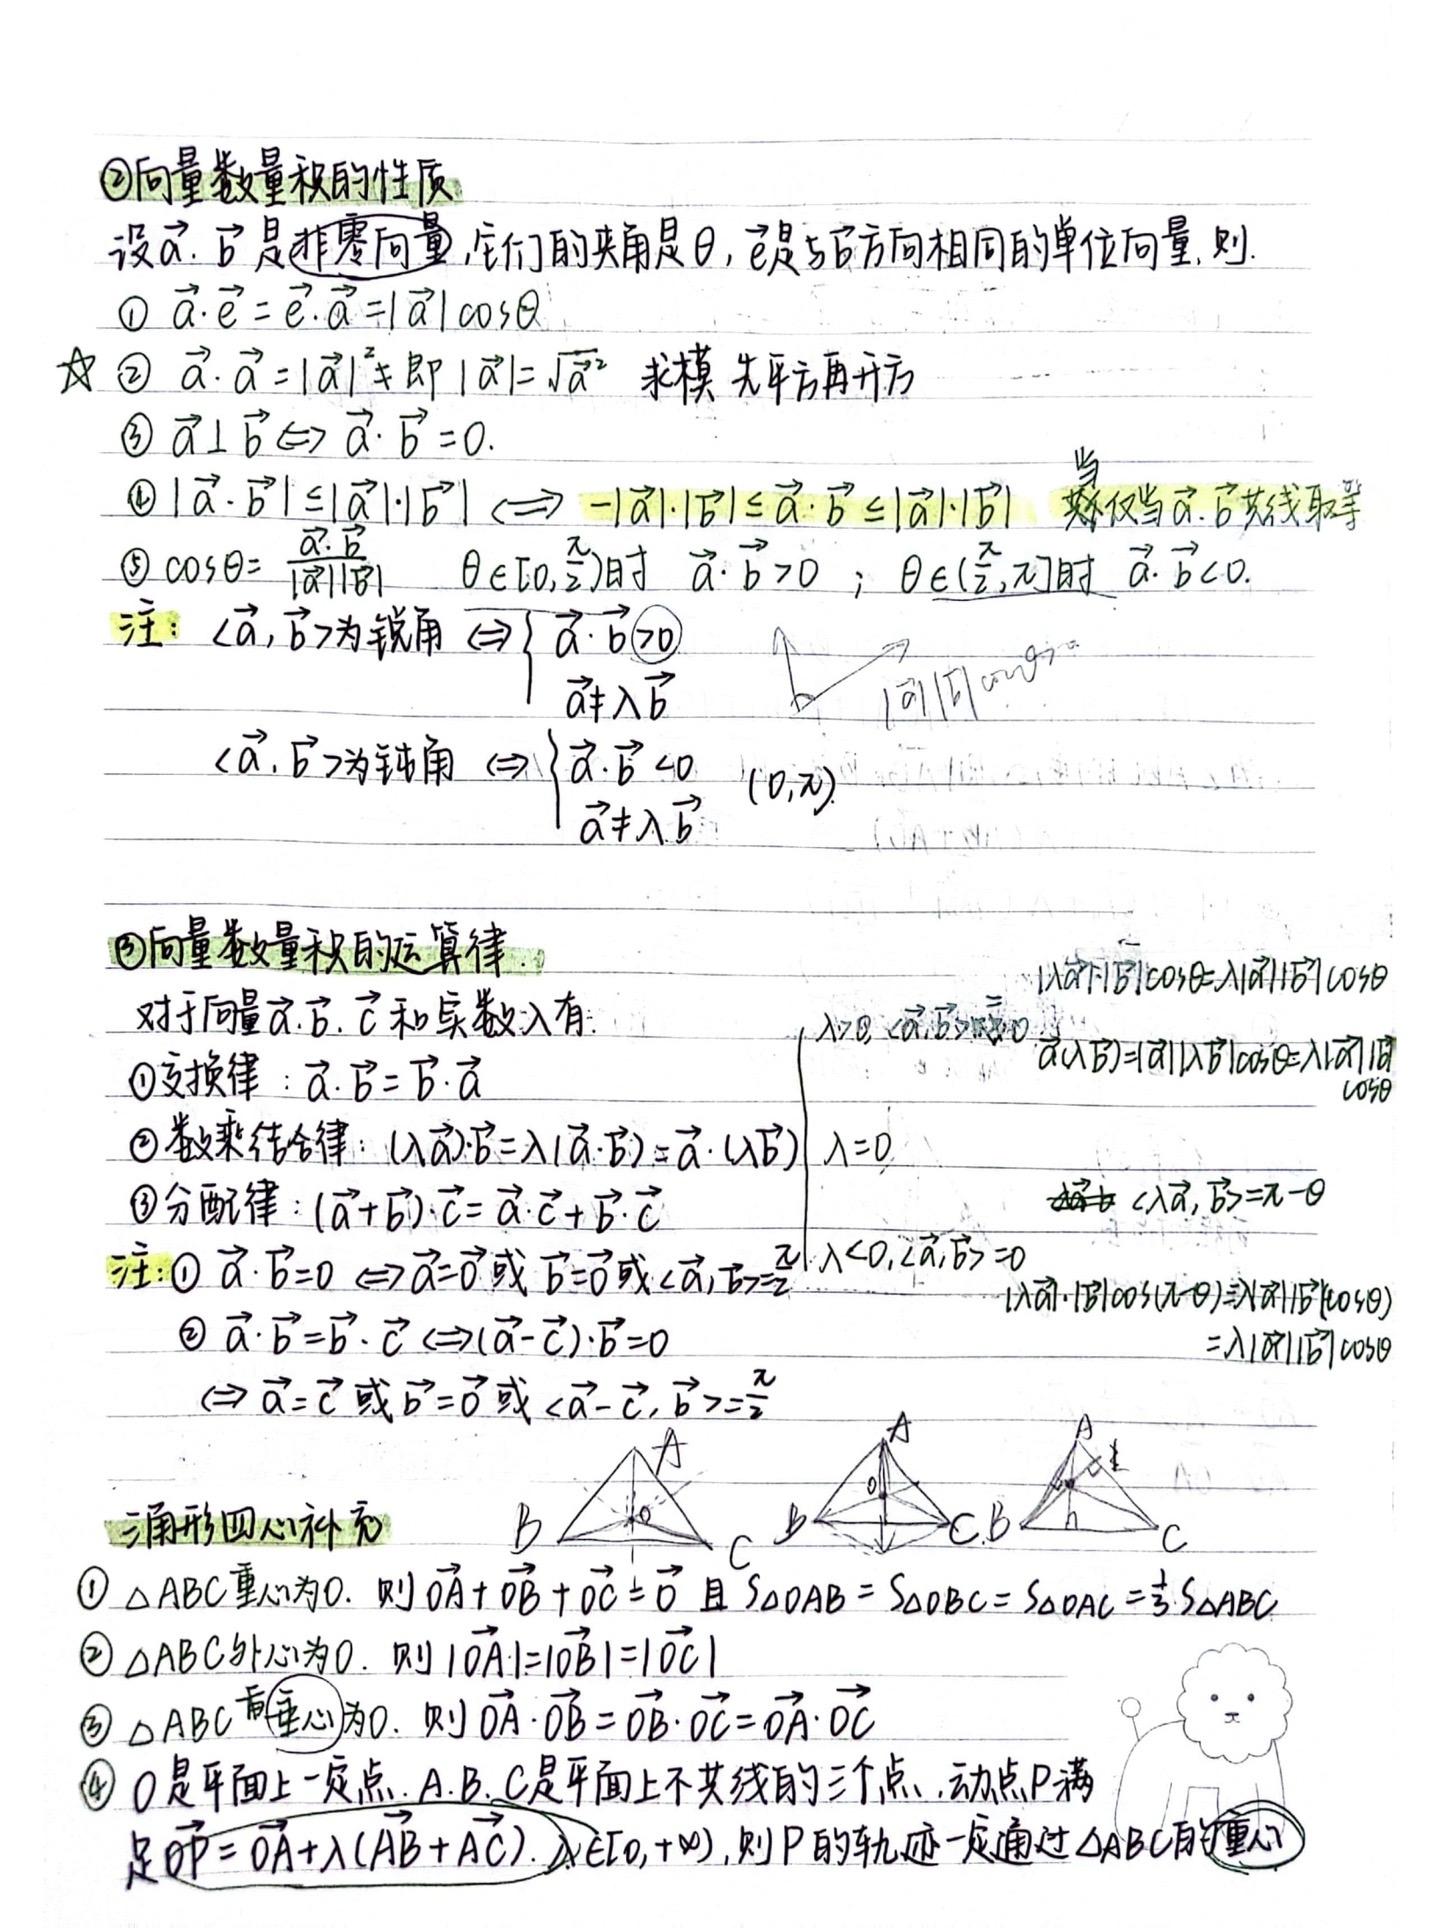 ②向量数量积的性质
设a⃗.b⃗是非零向量,它们的夹角是θ,e⃗是与b⃗方向相同的单位向量,则.
① a⃗·e⃗=e⃗·a⃗=|a⃗|cosθ
☆② a⃗·a⃗=|a⃗|² 即|a⃗|=√a⃗² 求模 先平方再开方
③ a⃗⊥b⃗⇔a⃗·b⃗=0.
④|a⃗·b⃗|≤|a⃗|·|b⃗| ⇔ -|a⃗|·|b⃗|≤a⃗·b⃗≤|a⃗|·|b⃗| 当仅当a⃗.b⃗共线取等
⑤ cosθ=a⃗·b⃗/|a⃗||b⃗| θ∈[0,π/2)时 a⃗·b⃗>0 ; θ∈(π/2,π]时 a⃗·b⃗<0.
注: <a⃗,b⃗>为锐角 ⇔ { a⃗·b⃗>0
a⃗≠λb⃗
|a⃗||b⃗|cosθ>0
<a⃗.b⃗>为钝角 ⇔ { a⃗·b⃗<0 (0,π)
a⃗≠λb⃗
③向量数量积的运算律.
对于向量a⃗.b⃗.c⃗和实数λ有.
①交换律:a⃗·b⃗=b⃗·a⃗
②数乘结合律:(λa⃗)·b⃗=λ(a⃗·b⃗)=a⃗·(λb⃗)
③分配律:(a⃗+b⃗)·c⃗=a⃗·c⃗+b⃗·c⃗
注:① a⃗·b⃗=0⇔a⃗=0⃗或b⃗=0⃗或<a⃗,b⃗>=π/2
② a⃗·b⃗=b⃗·c⃗⇔(a⃗-c⃗)·b⃗=0
⇔a⃗=c⃗或b⃗=0⃗或<a⃗-c⃗,b⃗>=π/2
|λa⃗|·|b⃗|cosθ=λ|a⃗||b⃗|cosθ
λ>0,<a⃗,b⃗>=θ
a⃗(λb⃗)=|a⃗||λb⃗|cosθ=λ|a⃗||b⃗|
cosθ
λ=0
<λa⃗,b⃗>=π-θ
λ<0,<a⃗,b⃗>=θ
|λa⃗|·|b⃗|cos(π-θ)=λ|a⃗||b⃗|(cosθ)
=λ|a⃗||b⃗|cosθ
A
B
O
C
A
B
O
C.
A
B
C
三角形四心补充
①△ABC重心为O.则OA⃗+OB⃗+OC⃗=0⃗且S△OAB=S△OBC=S△OAC=1/3·S△ABC
②△ABC外心为O.则|OA⃗|=|OB⃗|=|OC⃗|
③△ABC垂心为O.则OA⃗·OB⃗=OB⃗·OC⃗=OA⃗·OC⃗
④O是平面上一定点.A.B.C是平面上不共线的三个点,动点P满
足OP⃗=OA⃗+λ(AB⃗+AC⃗).λ∈[0,+∞),则P的轨迹一定通过△ABC的重心